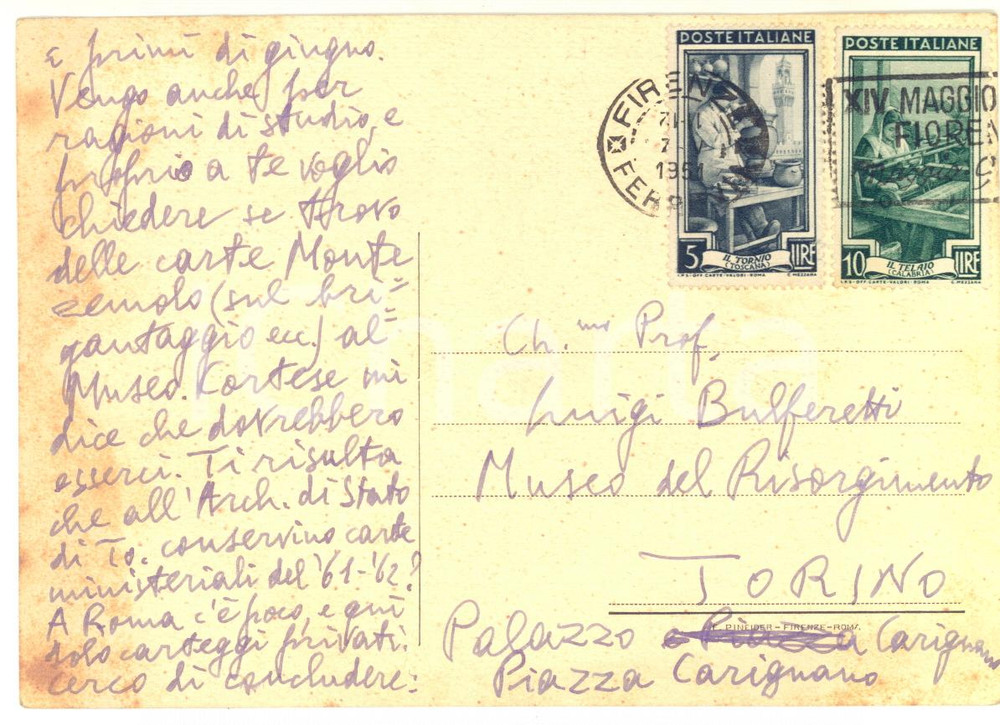 e primi di giugno.
Vengo anche per
ragioni di studio, e
proprio a te voglio
chiedere se trovo
delle carte Monte
zemolo (sul bri=
gantaggio ecc.) al=
Museo. Cortese mi
dice che dovrebbero
esserci. Ti risulta
che all'Arch. di Stato
di To. conservino carte
ministeriali del '61-'62?
A Roma c'è poco, e qui
solo carteggi privati.
cerco di concludere:
POSTE ITALIANE
5 LIRE
IL TORNIO
(TOSCANA)
I.P.S-OFF. CARTE-VALORI-ROMA C. MEZZANA
POSTE ITALIANE
10 LIRE
IL TELAIO
(CALABRIA)
I.P.S-OFF. CARTE-VALORI-ROMA C. MEZZANA
FIRENZE
FERR
XIV MAGGIO
FIOREN
Ch.mo Prof.
Luigi Bulferetti
Museo del Risorgimento
TORINO
PINEIDER-FIRENZE-ROMA
Palazzo Carignano
Piazza Carignano